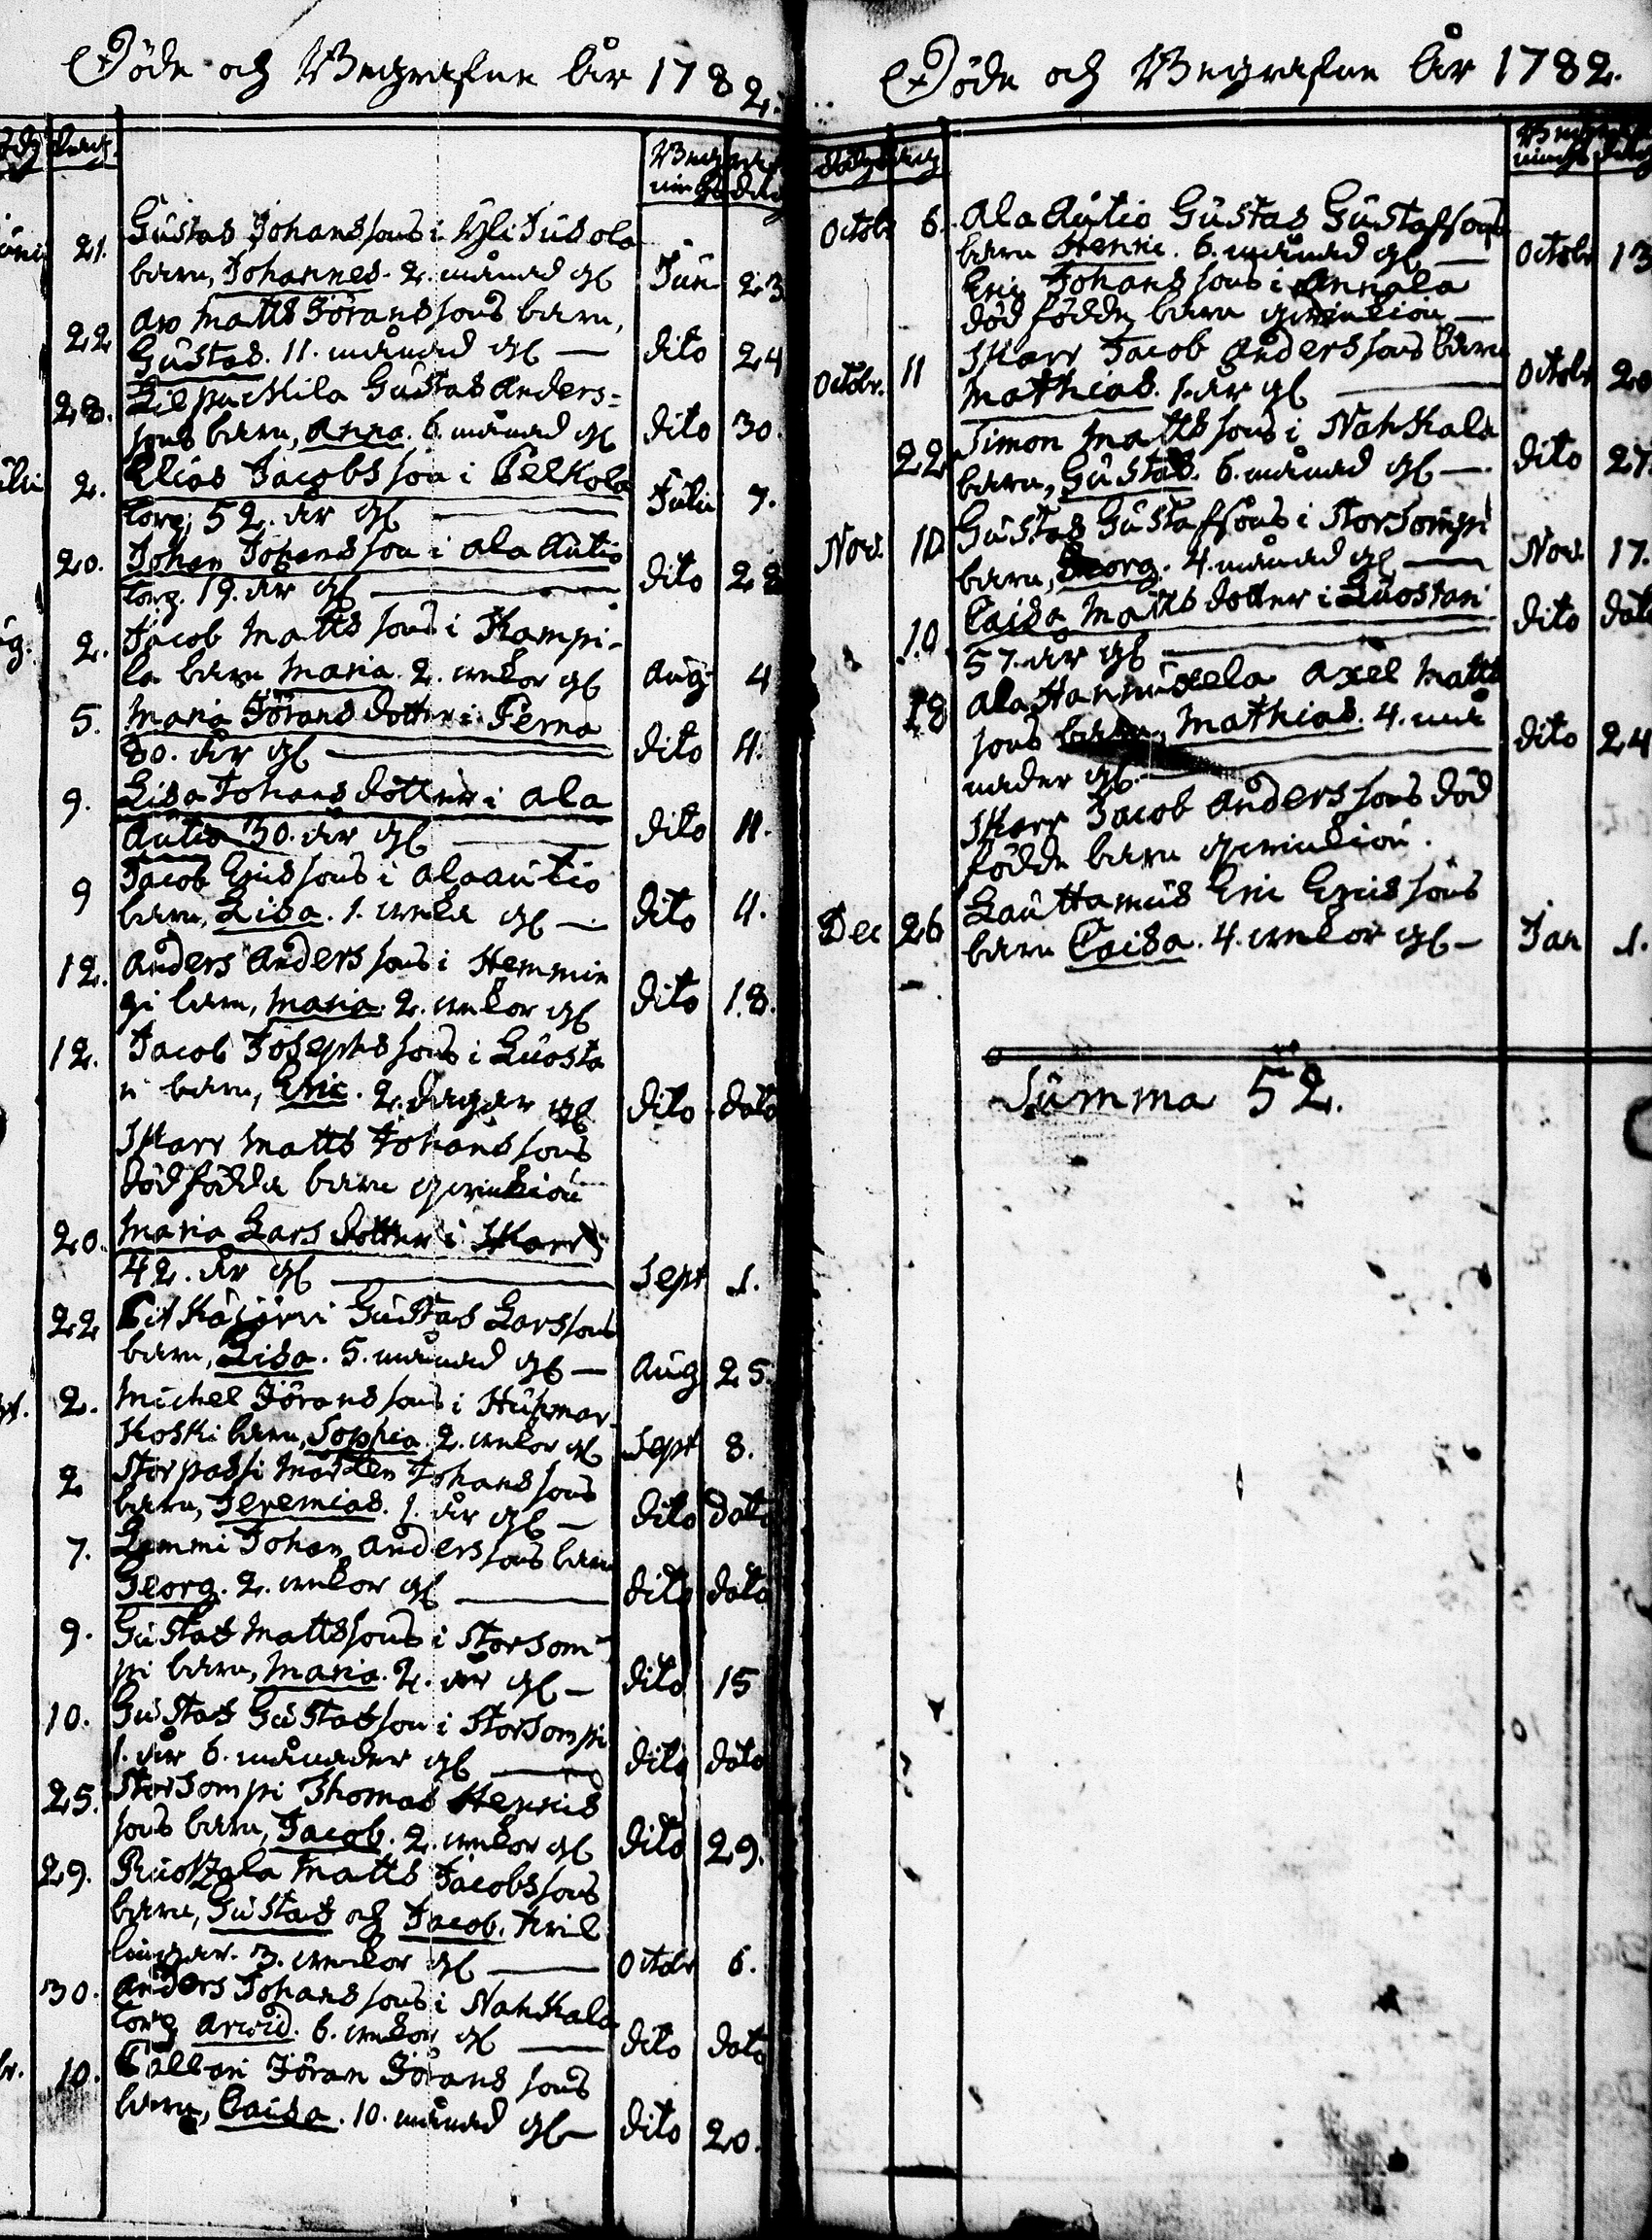 Döde och Begrafne År 1782.
dag.
Begraf- nings dag
21. Gustas Johanssons i Yli Jusola
barn, Johannes. 2. månad gl Jun 23
22 Aro Matts Jöranssons barn,
Gustas. 11. månad gl — dito 24
28. Gustas Anders=
sons barn, Anna. 6. månad gl dito 30.
2. Elias Jacobsson i Pelkola
torp, 52. år gl — Julii 7.
20. Johan Johansson i Ala Autio
torp. 19. år gl — dito 28
2. Jacob Mattssons i Kampi-
la barn Maria. 2. wekor gl Aug 4
5. Maria Jörans dotter i Perna
80. år gl — dito 11.
9. Lisa Johans dotter i Ala
Autio 30. år gl — dito 11.
9 Jacob Ericssons i Alaautio
barn, Lisa. 1. weka gl — dito 11.
12. Anders Anderssons i Hemmin
gi barn, Maria. 2. wekor gl dito 18.
12. Jacob Josephssons i Luosta
ri barn, Eric. 2. dagar gl dito dato
Skarr Matts Johanssons
dödfödda barn qwinkiön
20. Maria Lars dotter i Skarr
42. år gl — Sept 1.
22 Pitkäjärvi Gustas Larssons
barn, Lisa. 5. månad gl — Aug 25.
2. Michel Jöranssons i Huhmar-
koski barn, Sophia. 2. wekor gl Sept 8.
2 Storpassi Mårten Johanssons
barn, Jeremias. 1. år gl — dito dato
7. Lammi Johan Anderssons barn
Georg. 2. wekor gl — dito dato
9. Gustaf Mattssons i Storsom-
pi barn, Maria. 2. år gl — dito 15
10. Gustaf Gustafson i Storsompi
1. år 6. månader gl — dito dato
25. Storsompi Thomas Henrics
sons barn, Jacob. 2. wekor gl dito 29.
29. Matts Jacobssons
barn, Gustaf och Jacob. twil
lingar. 3. wekor gl — Octobr 6.
30. Anders Johanssons i Nahkala
torp Arvid. 6. wekor gl — dito dato
10. Jöran Jöranssons
barn, Caisa. 10. månad gl — dito 20.
Döde och Begrafne År 1782.
Begraf- nings dag
Octobr 6. Ala Autio Gustas Gustafssons
barn Henric. 6. månad gl — Octobr 13
Eric Johanssons i Annala
död födde barn qwinkiön —
Octobr. 11 Skarr Jacob Anderssons barn
Mathias. 1. år gl — Octobr 20
22 Simon Mattssons i Nahkala
barn, Gustas. 6. månad gl — dito 27.
Nov. 10 Gustas Gustafsons i Storsompi
barn, Georg. 4. månad gl — Nov. 17.
10. Caisa Matts dotter i Luostari
57. år gl — dito dato
18 Ala Hannuxela Axel Matts
sons barn, Mathias. 4. må
nader gl. — dito 24
Skarr Jacob Anderssons död
födde barn qwinkiön.
Dec 26 Lauttamus Eric Ericssons
barn Caisa. 4. wekor gl — Jan 1.
Summa 52.